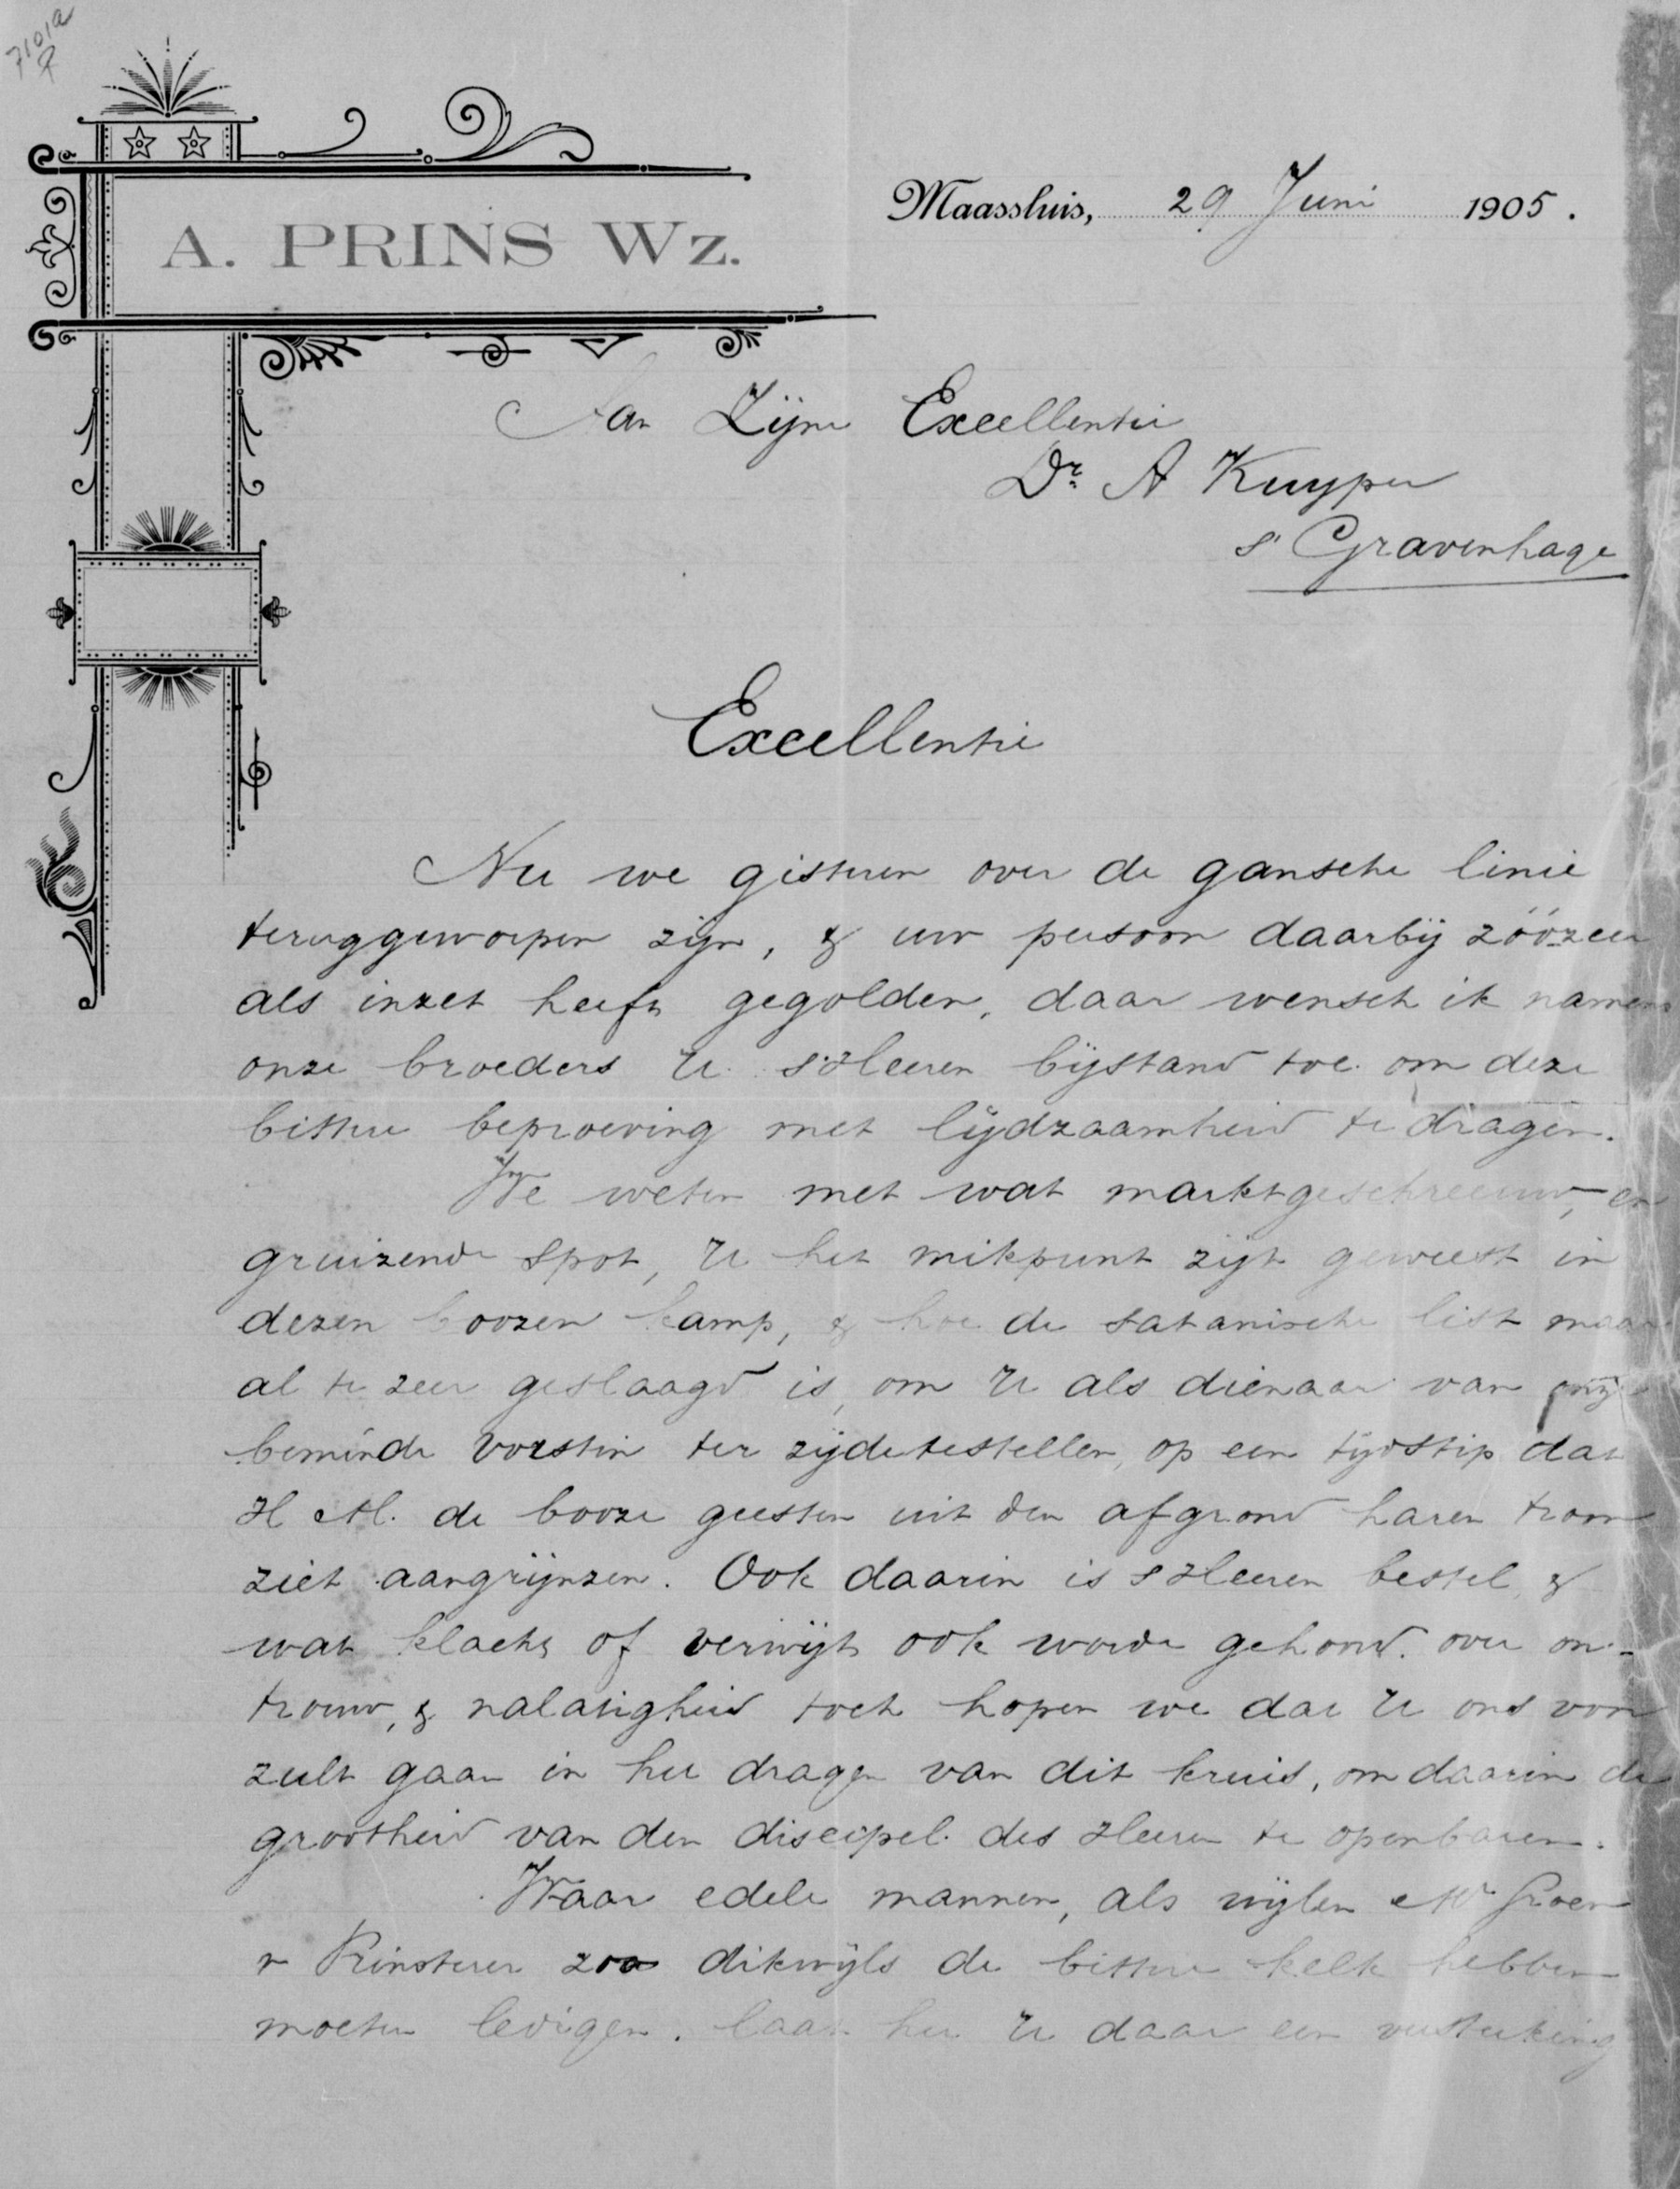 7101a
A. PRINS Wz.
Maassluis, 29 Juni 1905.
Aan Zijne Excellentie
Dr. A Kuyper
s' Gravenhage
Excellentie
Nu we gisteren over de gansche linie
teruggeworpen zijn, & uw persoon daarbij zóózeer
als inzet heeft gegolden, daar wensch ik namens
onze broeders U s'Heeren bijstand toe om deze
bittere beproeving met lijdzaamheid te dragen.
We weten met wat marktgeschreeuw, en
gruizende spot, U het mikpunt zijt geweest in
dezen boozen kamp, & hoe de satanische list maar
al te zeer geslaagd is, om U als dienaar van onze
beminde vorstin ter zijdetestellen, op een tijdstip dat
H M. de booze geesten uit den afgrond haren troon
ziet aangrijnzen. Ook daarin is s Heeren bestel, &
wat klacht of verwijt ook worde gehoord over on-
trouw, & nalatigheid toch hopen we dat U ons voor
zult gaan in het dragen van dit kruis, om daarin de
grootheid van den discipel des Heeren te openbaren.
Waar edele mannen, als wijlen Mr Groen
v Prinsterer zoo dikwijls de bittere kelk hebben
moeten ledigen. laat het U daar een versterking